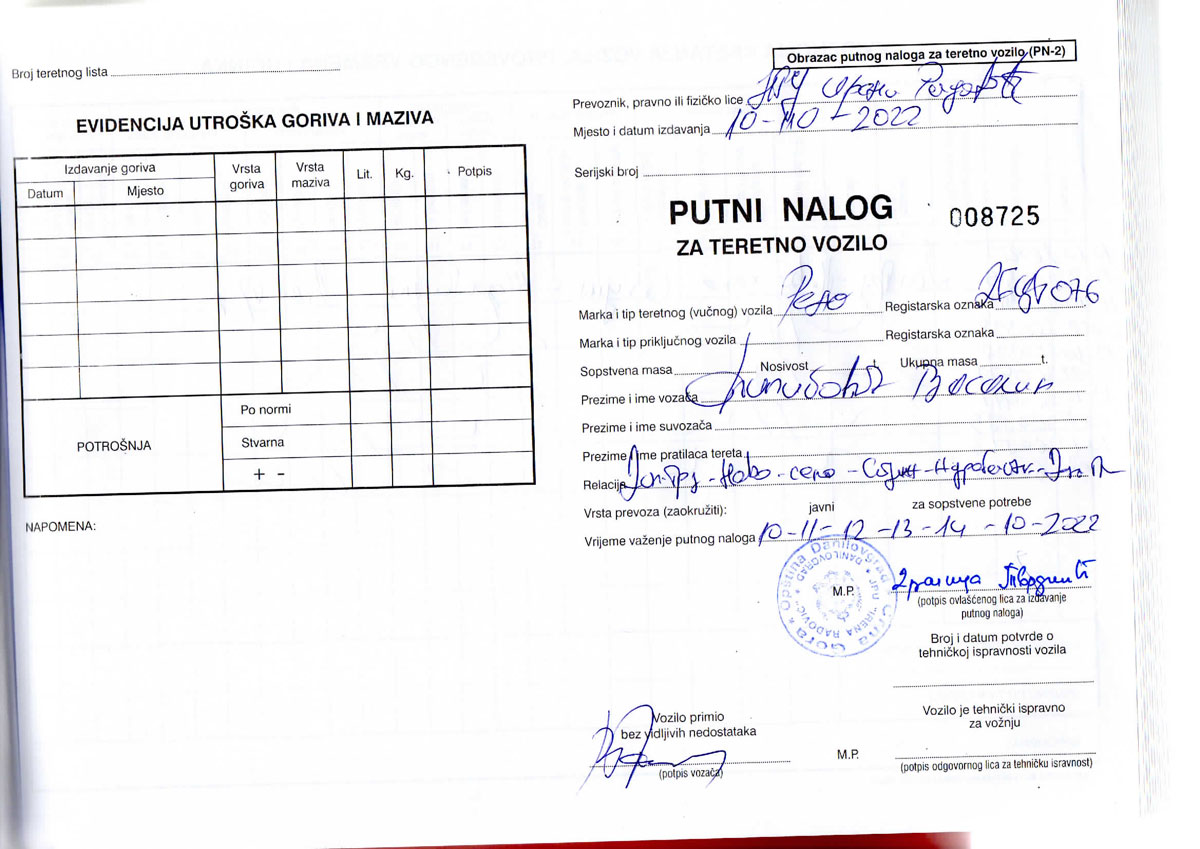 Broj teretnog lista
EVIDENCIJA UTROŠKA GORIVA I MAZIVA
Izdavanje goriva
Datum
Mjesto
Vrsta goriva
Vrsta maziva
Lit.
Kg.
Potpis
POTROŠNJA
Po normi
Stvarna
+ -
NAPOMENA:
Obrazac putnog naloga za teretno vozilo (PN-2)
Prevoznik, pravno ili fizičko lice ЈПУ
Mjesto i datum izdavanja 10-10-2022
Serijski broj
PUTNI NALOG 008725
ZA TERETNO VOZILO
Marka i tip teretnog (vučnog) vozila Registarska oznaka
Marka i tip priključnog vozila Registarska oznaka
Sopstvena masa Nosivost Ukupna masa t.
Prezime i ime vozača
Prezime i ime suvozača
Prezime i ime pratilaca tereta
Relacija Ново-село
Vrsta prevoza (zaokružiti): javni za sopstvene potrebe
Vrijeme važenje putnog naloga 10-11-12-13-14-10-2022
Opština Danilovgrad * Crna Gora *
JPU "IRENA RADOVIĆ" * DANILOVGRAD *
M.P.
(potpis ovlašćenog lica za izdavanje
putnog naloga)
Broj i datum potvrde o
tehničkoj ispravnosti vozila
Vozilo primio
bez vidljivih nedostataka
(potpis vozača)
Vozilo je tehnički ispravno
za vožnju
M.P.
(potpis odgovornog lica za tehničku isravnost)